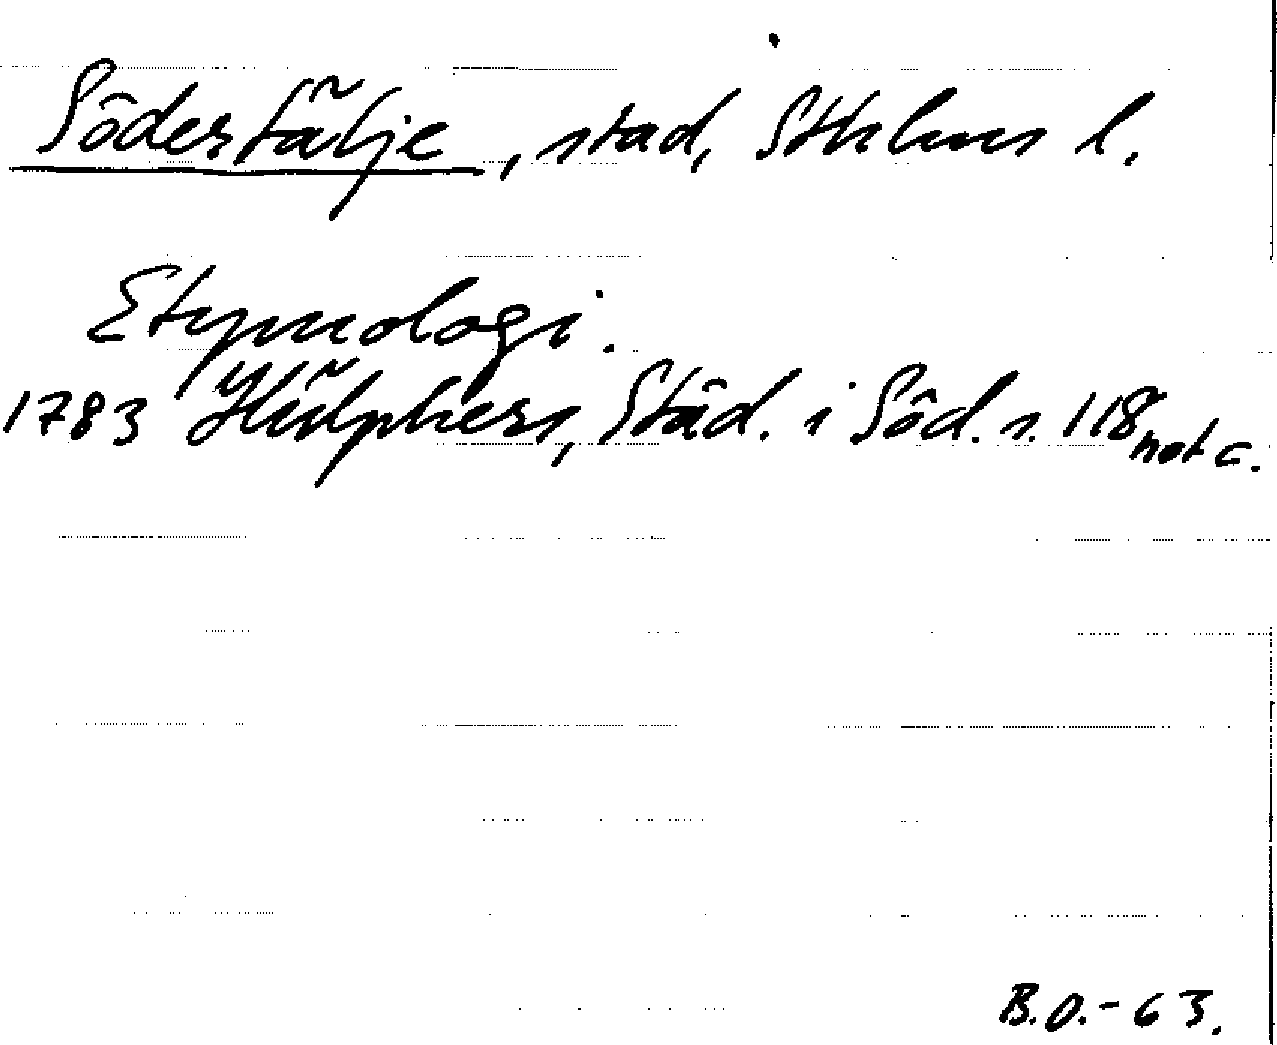 Södertälje, stad, Sthlms l.
Etymologi.
1783 Hülphers, Städ. i Söd. s. 118 not c.
B.O.-63.